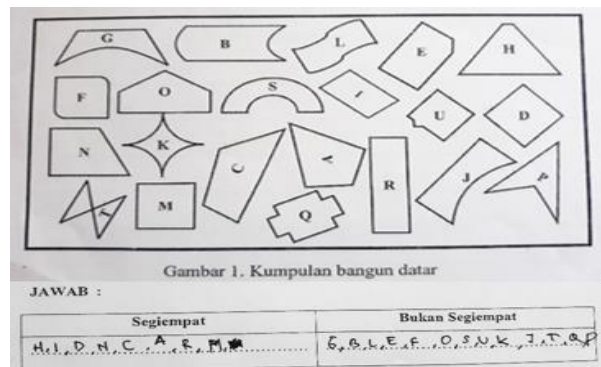 G B L E H
F O S I U D
N K C A J P
T M Q R
Gambar 1. Kumpulan bangun datar
JAWAB :
Segiempat Bukan Segiempat
H, I, D, N, C, A, R, M, G, B, L, E, F, O, S, U, K, J, T, Q, P